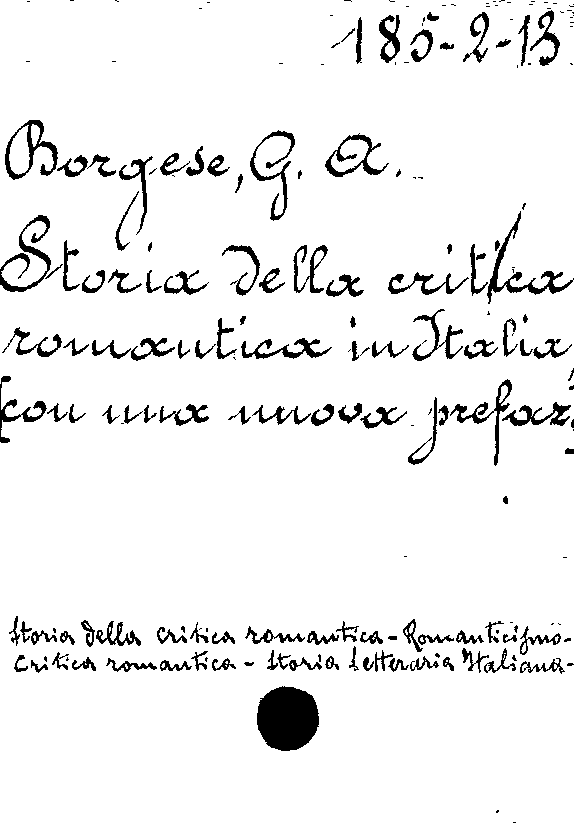 185-2-13
Borgese, G. A.
Storia della critica
romantica in Italia,
[con una nuova prefaz.
Storia della critica romantica - Romanticismo -
Critica romantica - Storia Letteraria Italiana -